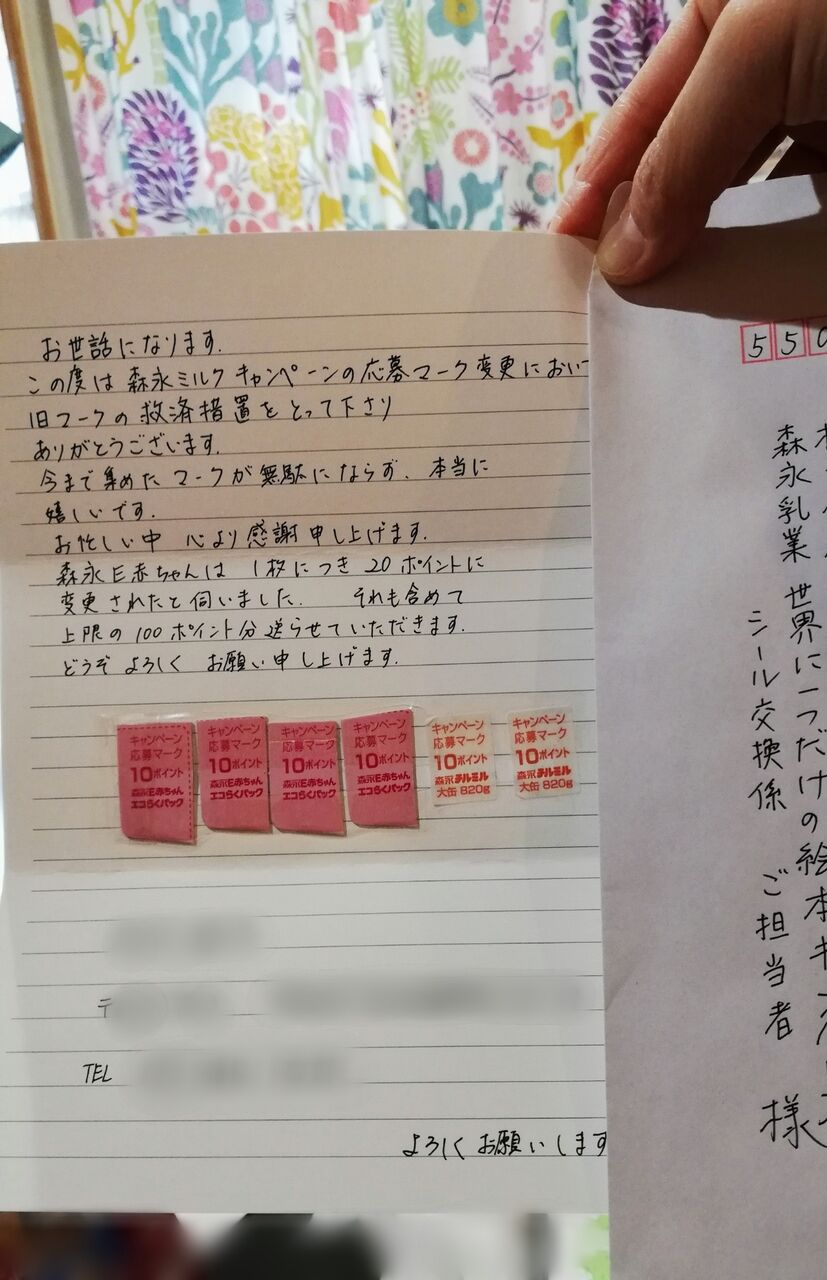 お世話になります.
この度は 森永ミルク キャンペーンの応募マーク変更において
旧マークの救済措置をとって下さり
ありがとうございます.
今まで集めた マークが無駄にならず、本当に
嬉しいです.
お忙しい中 心より感謝申し上げます.
森永E赤ちゃんは 1枚につき 20 ポイントに
変更されたと伺いました. それも含めて
上限の100ポイント分送らせていただきます.
どうぞ よろしく お願い申し上げます.
キャンペーン
応募マーク
10ポイント
森永E赤ちゃん
エコらくパック
キャンペーン
応募マーク
10ポイント
森永E赤ちゃん
エコらくパック
キャンペーン
応募マーク
10ポイント
森永E赤ちゃん
エコらくパック
キャンペーン
応募マーク
10ポイント
森永E赤ちゃん
エコらくパック
キャンペーン
応募マーク
10ポイント
森永チルミル
大缶 820g
キャンペーン
応募マーク
10ポイント
森永チルミル
大缶 820g
〒
TEL
よろしくお願いします
550
森永乳業 世界に一つだけの絵本
シール交換係 ご担当者 様